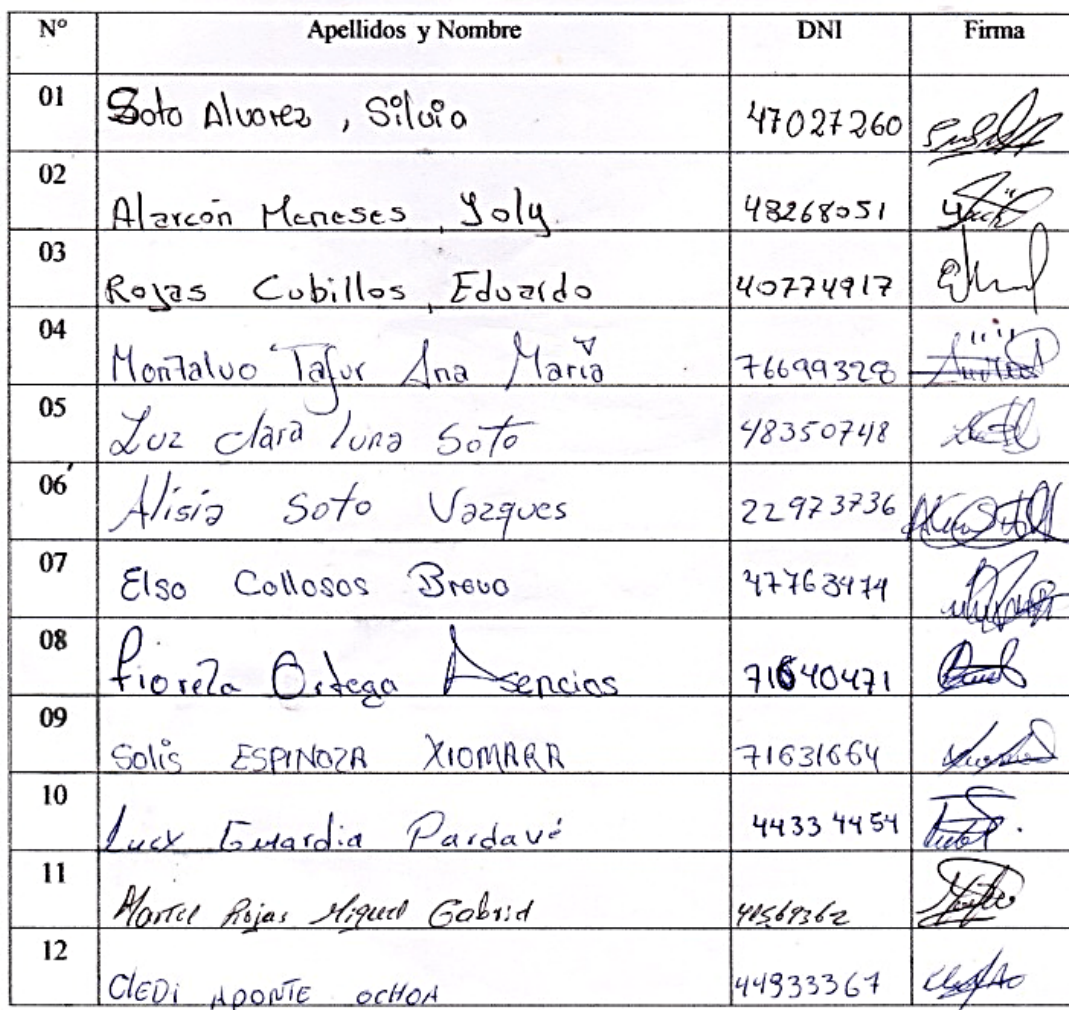 N° Apellidos y Nombre DNI Firma
01 Soto Alvarez , Silvia 47027260
02 Alarcón Meneses, Yoly. 48268051
03 Rojas Cubillos, Eduardo 40774917
04 Montalvo Tafur Ana María 76699328
05 Luz clara luna Soto 48350748
06 Alisia Soto Vazques 22973736
07 Elso Collosos Bravo 47763474
08 Fiorela Ortega Asencios 71640471
09 Solis ESPINOZA XIOMARA 71631664
10 Lucy Guardia Pardavé 44334454
11 Martel Rojas Miguel Gabriel
12 CLEDi APONTE OCHOA 44933367